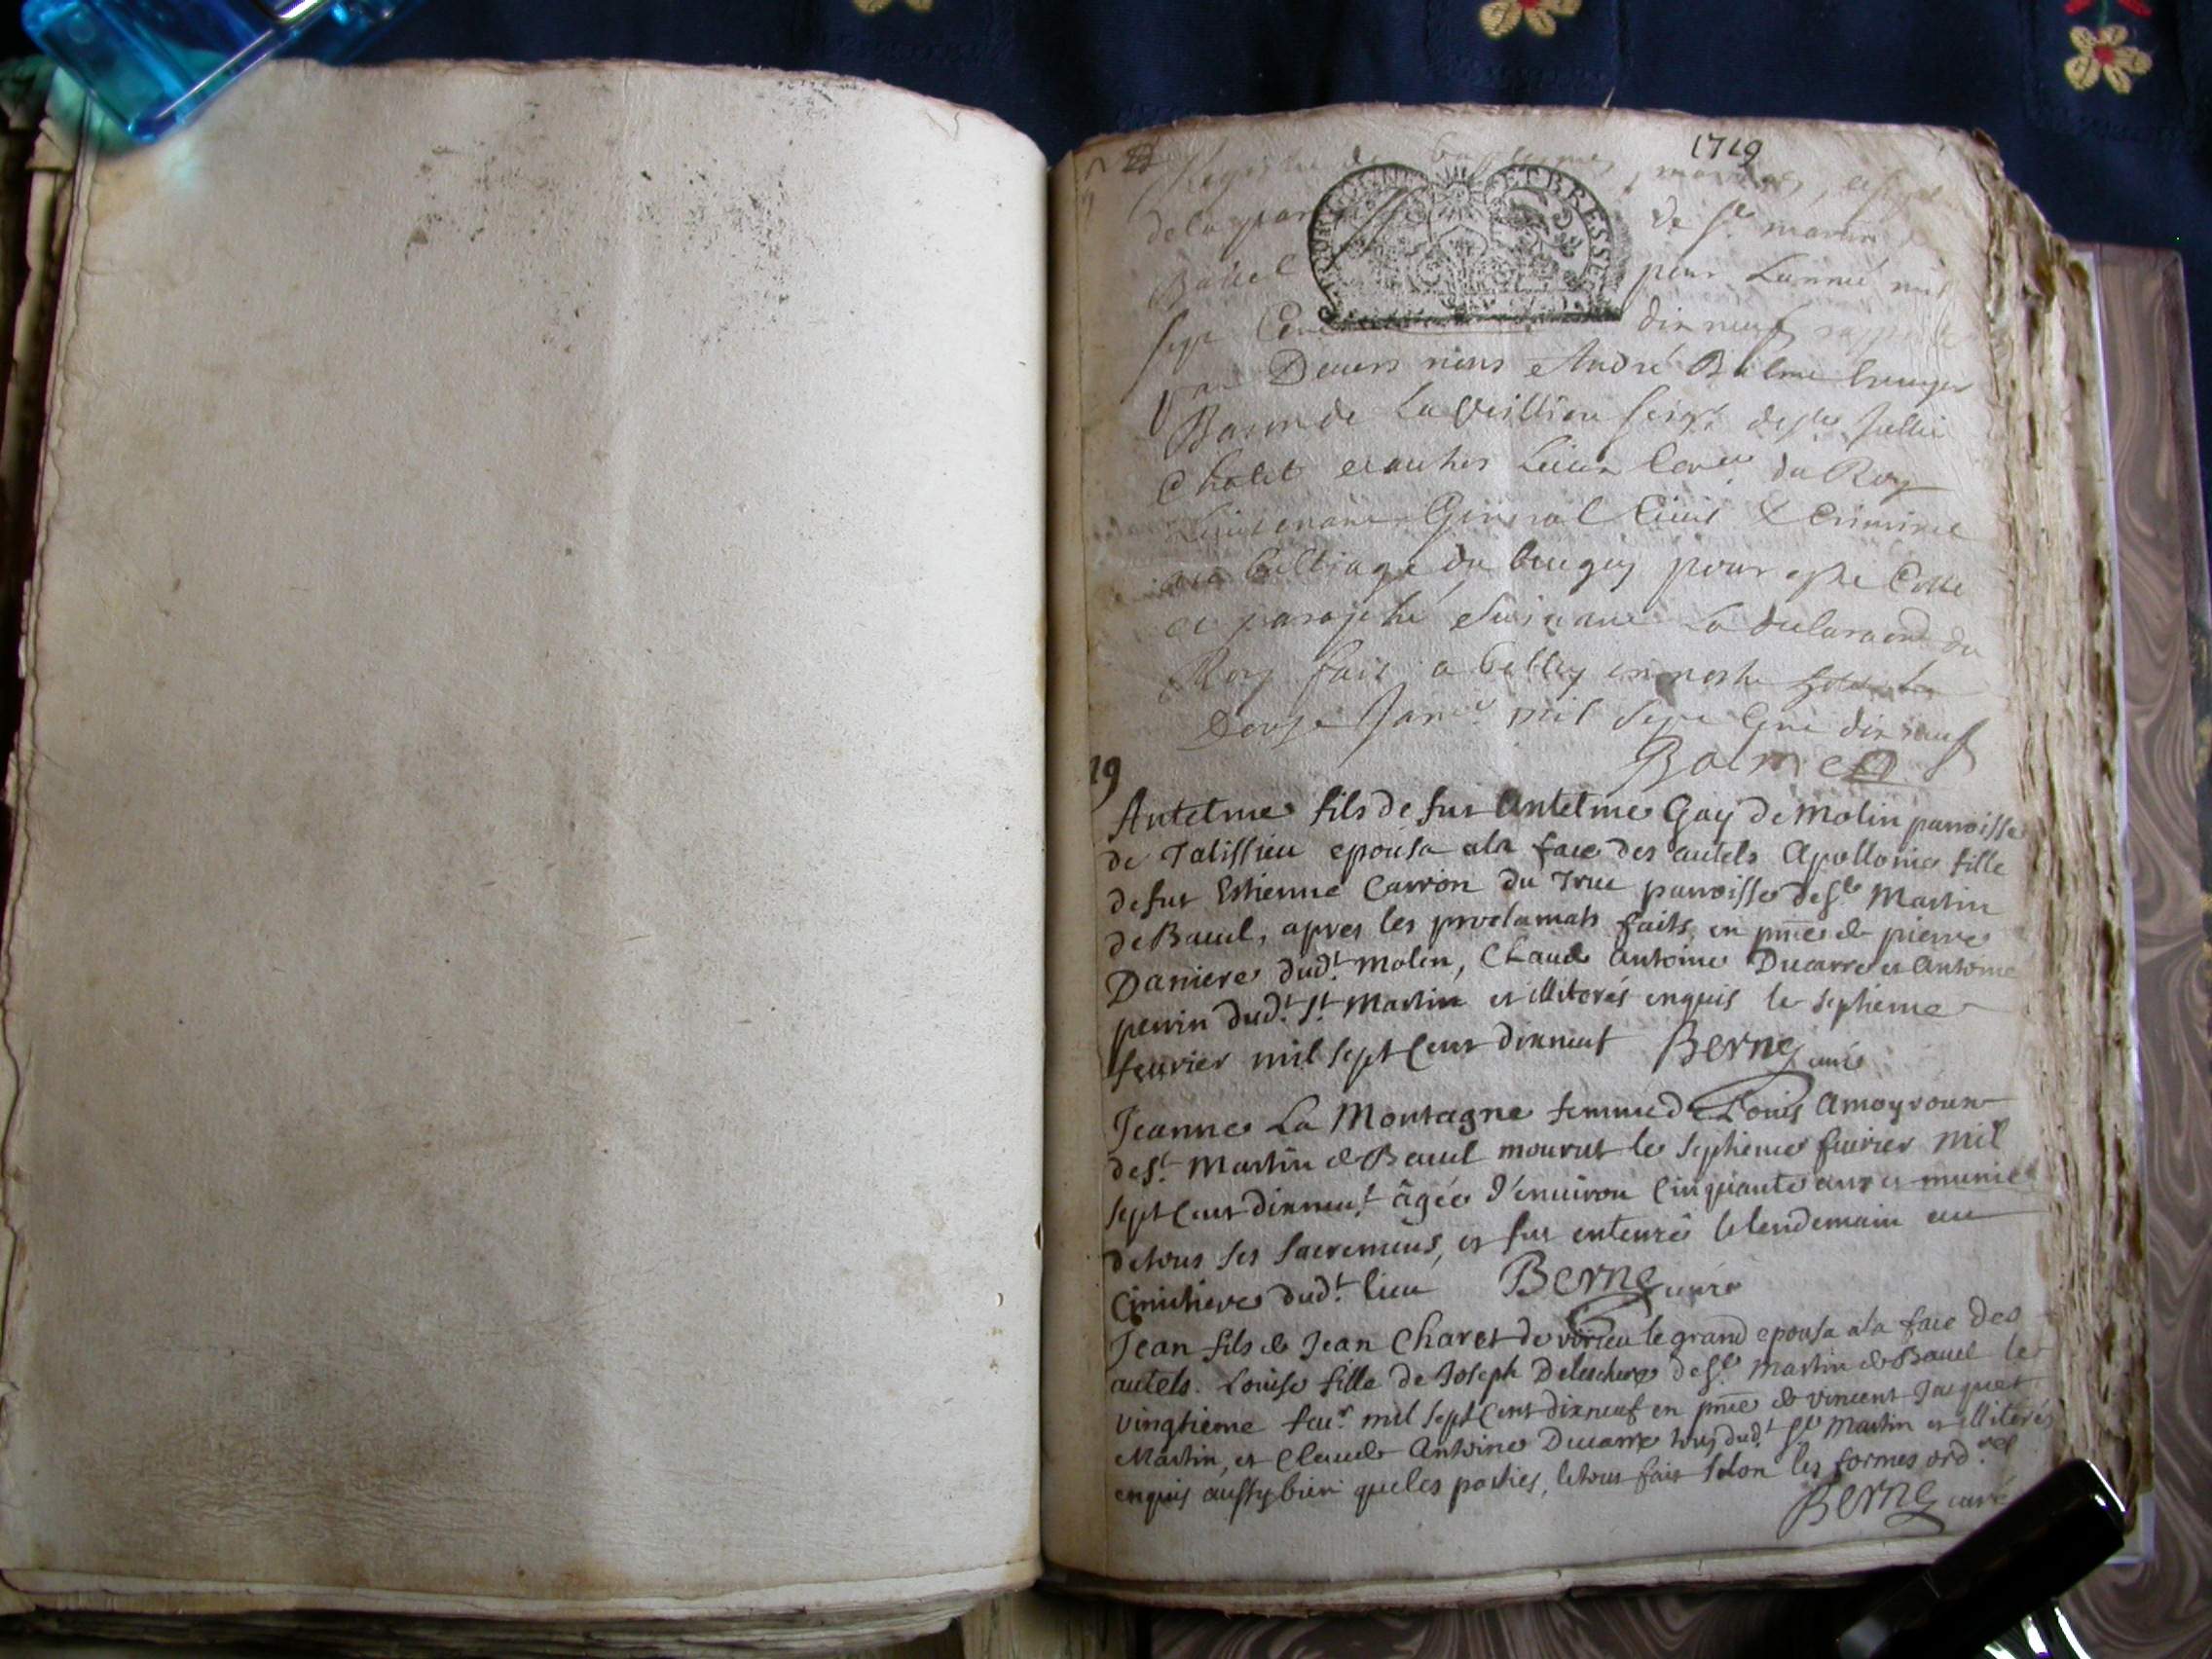 1719
Registre de baptesmes, mariages,
de la par de St martin de
Bavel pour Lannée mil
sept Cent dix neuf
BOURGOGNE ET BRESSE
par Devers nous André Balme
Baron de La Veilliere seigr de
Cholet et autres Lieux Coner du Roy
Lieutenant General Civil & Criminel
au Balliage du beugey pour estre Cotté
et paraphé Suivant La declaraon du
Roy fait a belley en nostre
Douze Janer mil sept Cent dix neuf
Balme
19
Antelme fils de fut Antelme Gay de Molin parroisse
de Talissieu epousa a la face des autels Apollonie fille
de fut Estienne Carron du Truc parroisse de St Martin
de Bavel, apres les proclamats faits, en pnce de pierre
Daniere dudt Molin, Claude Antoine Ducarre et Antoine
perrin dudt St Martin et illiterés enquis le septieme
fevrier mil sept Cent dixneuf Berne curé
Jeanne La Montagne femme de Louis Amoyroux
de St Martin de Bavel mourut le septieme fevrier mil
sept Cent dixneuf âgée d'environ Cinquante ans et munie
de tous ses sacremens, et fut enterrée le lendemain au
Cimitiere dudt lieu Berne curé
Jean fils de Jean Charet de virieu le grand epousa a la face des
autels. Louise fille de Joseph Delescluse de St Martin de Bavel le
vingtieme fevr mil sept Cent dixneuf en pnce de vincent Jacquet
Martin, et Claude Antoine Ducarre tous dudt St Martin et illiterés
enquis aussy bien que les parties, le tout fait selon les formes ordres
Berne curé